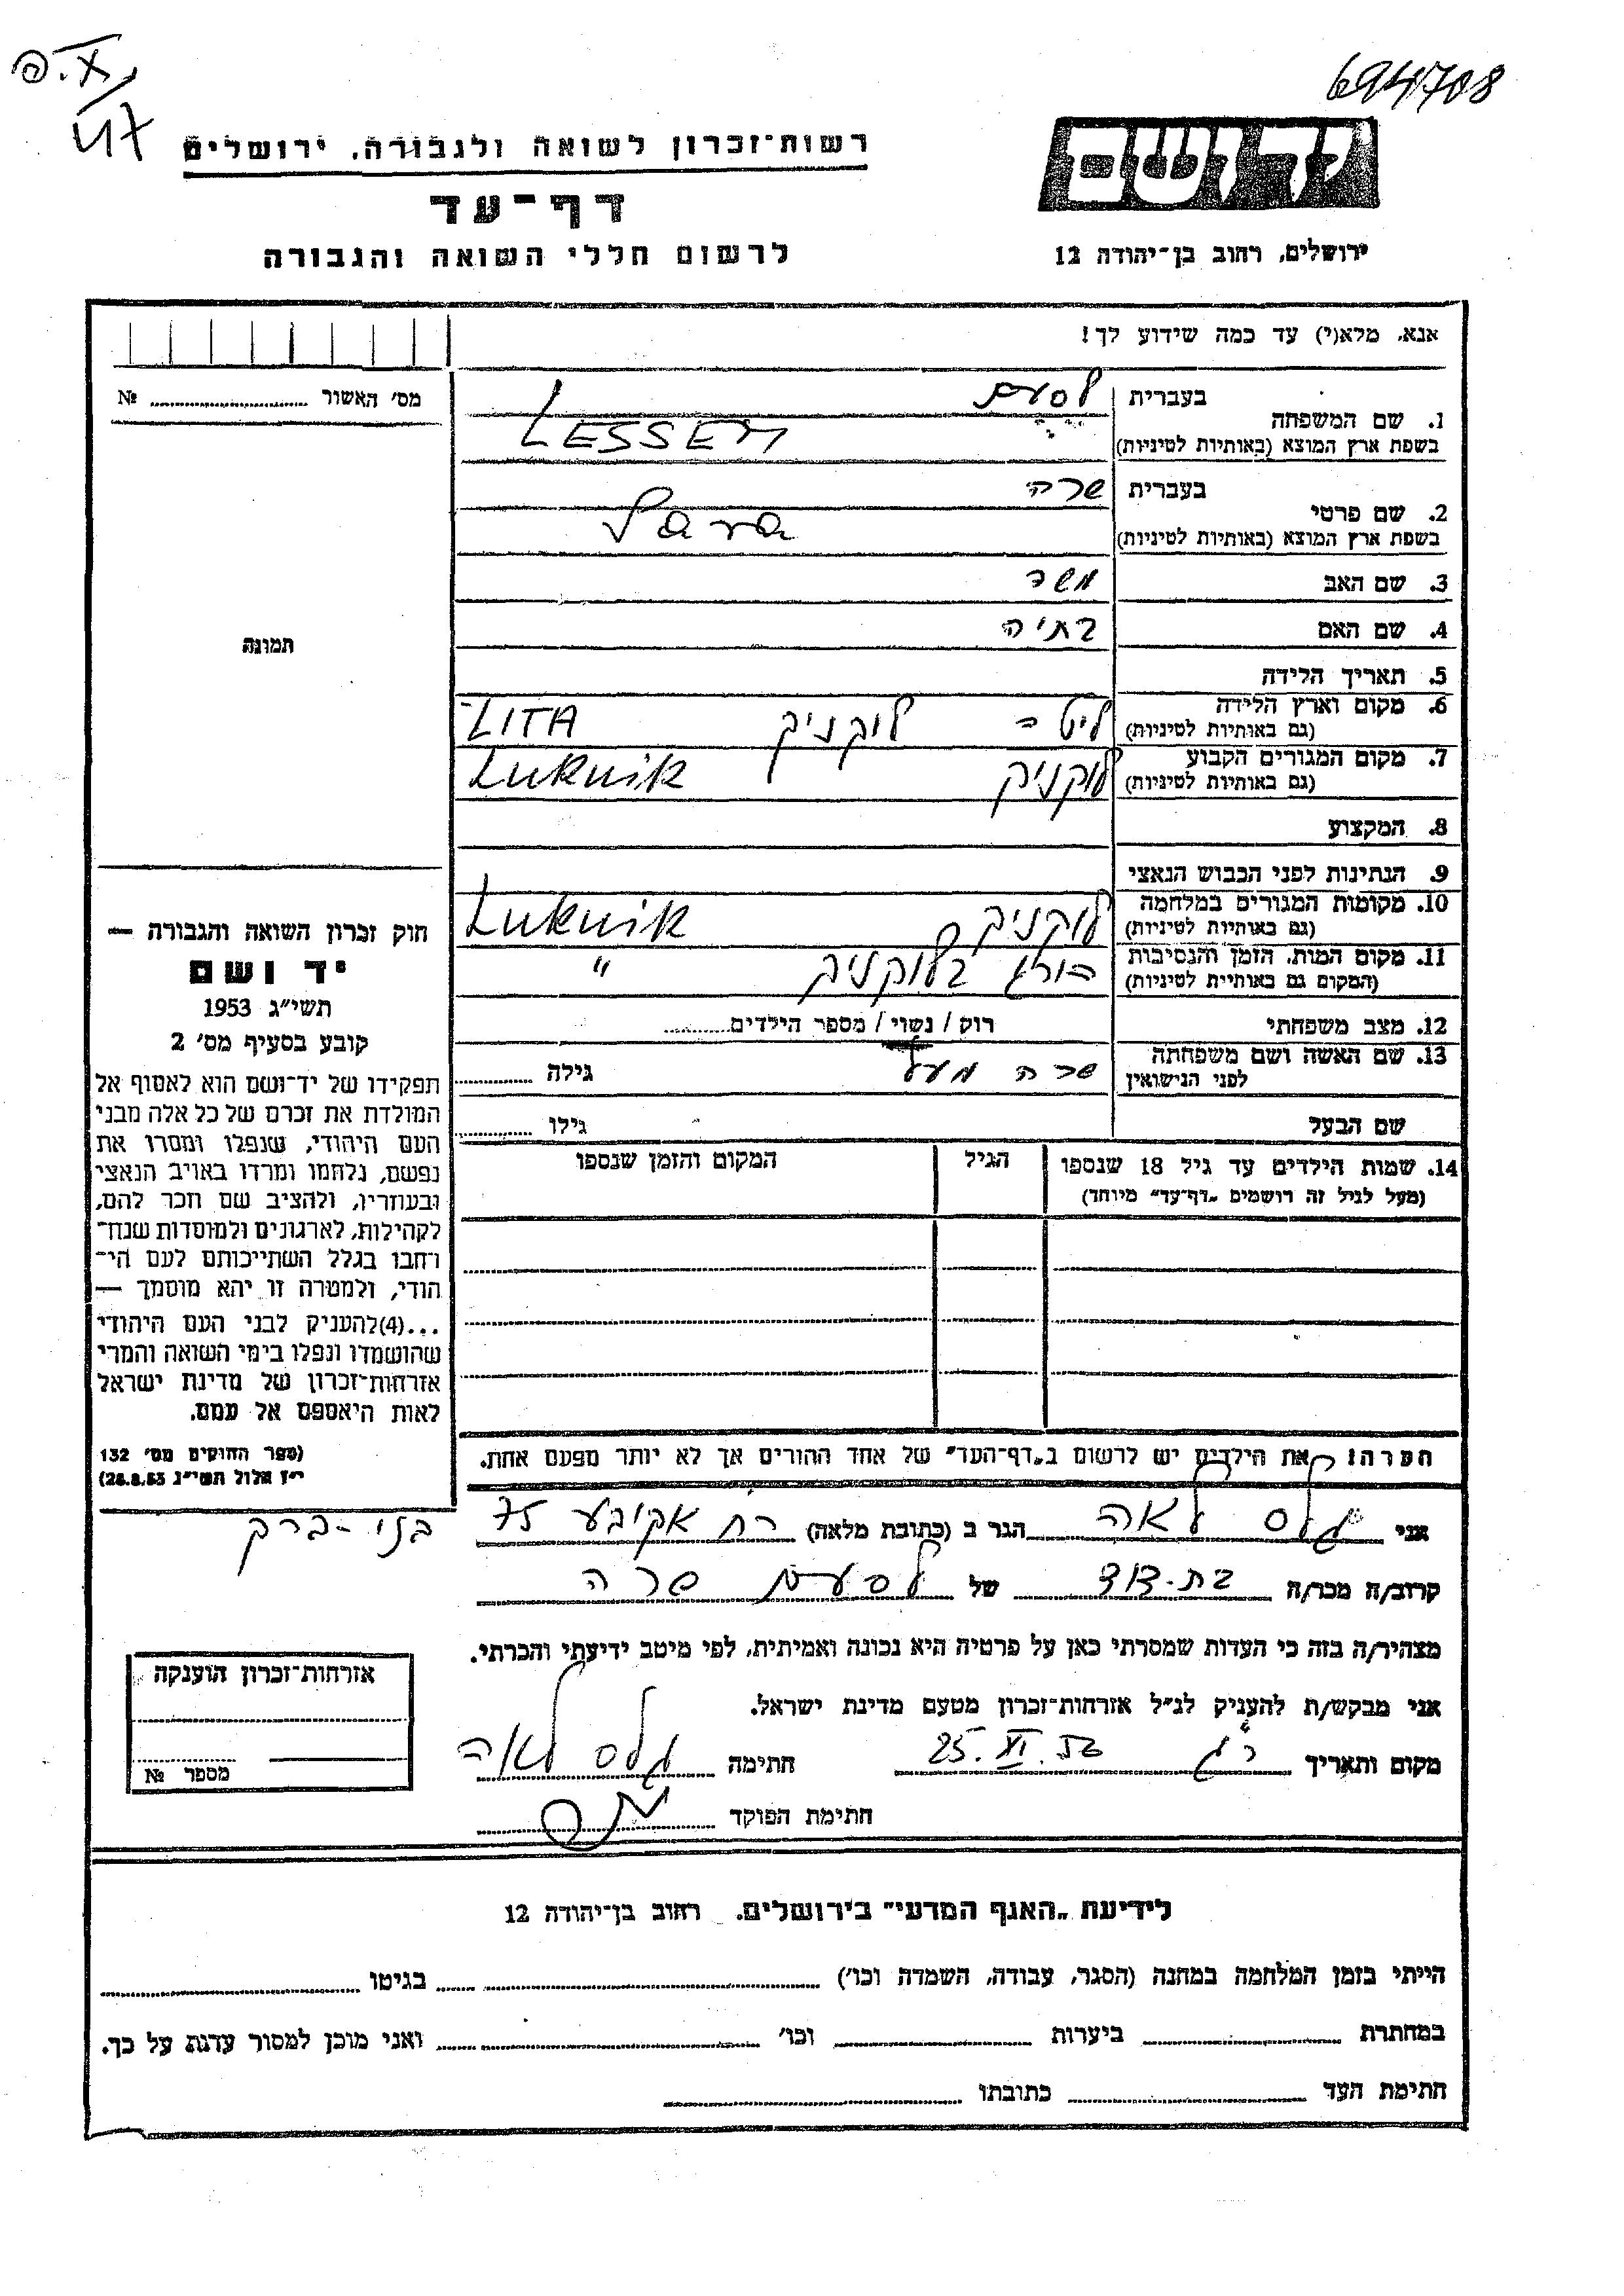 694708
רשות־זכרון לשואה ולגבורה, ירושלים
דף־עד
לרשום חללי השואה והגבורה
ידושם
ירושלים, רחוב בן־יהודה 12
אנא, מלא(י) עד כמה שידוע לך!
מס׳ האשור № 
1. שם המשפחה בעברית לסעם
בשפת ארץ המוצא (באותיות לטיניות) LESSEM
2. שם פרטי בעברית שרה
בשפת ארץ המוצא (באותיות לטיניות) Sara
3. שם האב משה
4. שם האם בתיה
5. תאריך הלידה
6. מקום וארץ הלידה (גם באותיות לטיניות) ליטה לוקניק LITA
7. מקום המגורים הקבוע (גם באותיות לטיניות) לוקניק Luknik
8. המקצוע
9. הנתינות לפני הכבוש הנאצי
10. מקומות המגורים במלחמה (גם באותיות לטיניות) לוקניק Luknik
11. מקום המות, הזמן והנסיבות (המקום גם באותיות לטיניות) הורג בלוקניק "
12. מצב משפחתי רוק / נשוי / מספר הילדים
13. שם האשה ושם משפחתה לפני הנישואין שרה גילה
שם הבעל גילו
14. שמות הילדים עד גיל 18 שנספו הגיל המקום והזמן שנספו
(מעל לגיל זה רושמים „דף־עד" מיוחד)
הערה: את הילדים יש לרשום ב„דף־העד" של אחד ההורים אך לא יותר מפעם אחת.
תמונה
חוק זכרון השואה והגבורה —
יד ושם
תשי״ג 1953
קובע בסעיף מס׳ 2
תפקידו של יד־ושם הוא לאסוף אל
המולדת את זכרם של כל אלה מבני
העם היהודי, שנפלו ומסרו את
נפשם, נלחמו ומרדו באויב הנאצי
ובעוזריו, ולהציב שם וזכר להם,
לקהילות, לארגונים ולמוסדות שנח־
רבו בגלל השתייכותם לעם הי־
הודי, ולמטרה זו יהא מוסמך —
...(4)להעניק לבני העם היהודי
שהושמדו ונפלו בימי השואה והמרי
אזרחות־זכרון של מדינת ישראל
לאות היאספם אל עמם.
(ספר החוקים מס׳ 132
י״ז אלול תשי״ג 28.8.53)
אני גלס לאה הגר ב (כתובת מלאה) רח אקיבע 75 בני-ברק
קרוב/ה מכר/ה בת-דוד של לסעם שרה
מצהיר/ה בזה כי העדות שמסרתי כאן על פרטיה היא נכונה ואמיתית, לפי מיטב ידיעתי והכרתי.
אני מבקש/ת להעניק לנ״ל אזרחות־זכרון מטעם מדינת ישראל.
מקום ותאריך ר״ג 25.XI. חתימה גלס לאה
חתימת הפוקד
אזרחות־זכרון הוענקה
מספר №
לידיעת „האגף המדעי" בירושלים. רחוב בן־יהודה 12
הייתי בזמן המלחמה במחנה (הסגר, עבודה, השמדה וכו׳) בגיטו
במחתרת ביערות וכו׳ ואני מוכן למסור עדות על כך.
חתימת העד כתובתו